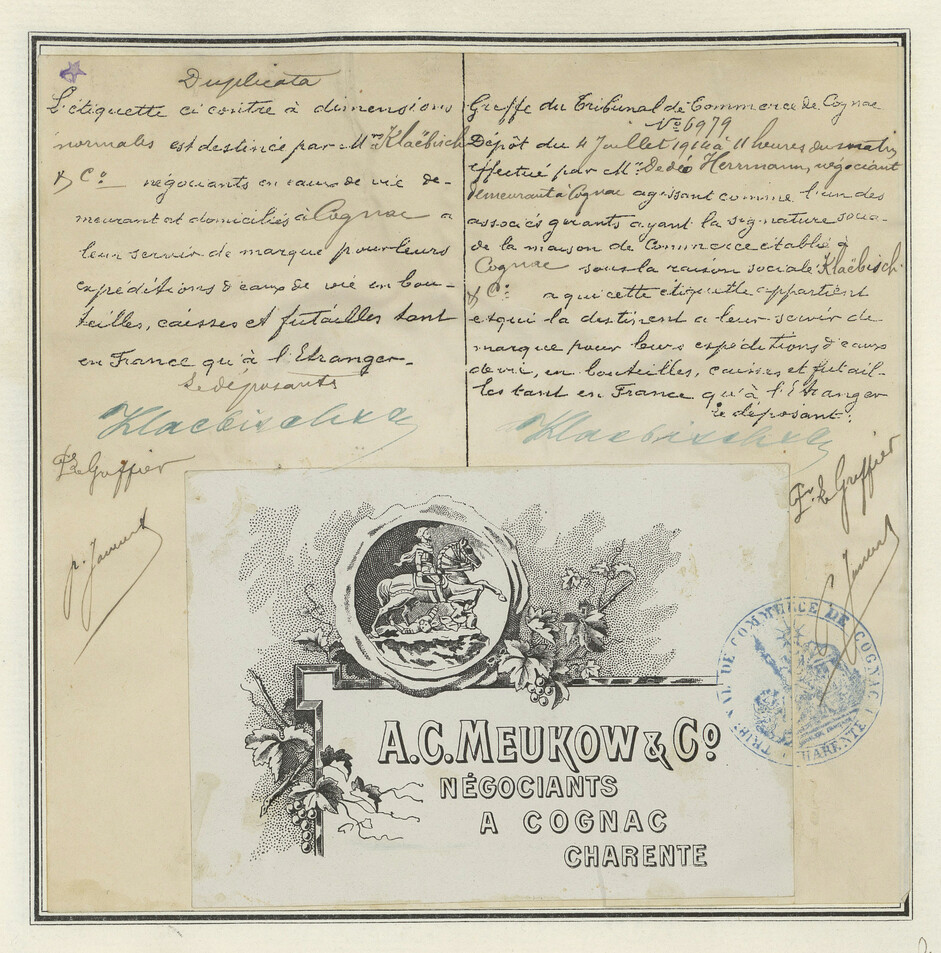 Duplicata
L'étiquette ci contre à dimensions
normales est destinée par Mrs Klaëbisch
& Co négociants en eaux de vie de-
meurant et domiciliés à Cognac a
leur servir de marque pour leurs
expéditions d'eaux de vie en bou-
teilles, caisses et futailles tant
en France qu'à l'Etranger-
Le déposants
Klaebisch & Co
Pr Le Greffier
Greffe du Tribunal de Commerce de Cognac
No 6979
Dépôt du 4 Juillet 1914 à 11 heures du matin
effectué par Mr Herrmann, négociant
demeurant à Cognac agissant comme l'un des
associés gérants ayant la signature socia-
de la maison de Commerce établie à
Cognac sous la raison sociale Klaëbisch
& Co a qui cette etiquette appartient
et qui la destinent a leur servir de
marque pour leurs expéditions d'eaux
de vie, en bouteilles, caisses et futail-
les tant en France qu'à l'Etranger
Le déposant.
Klaebisch & Co
Pr Le Greffier
TRIBUNAL DE COMMERCE DE COGNAC
CHARENTE
A.C. MEUKOW & Co
NÉGOCIANTS
A COGNAC
CHARENTE